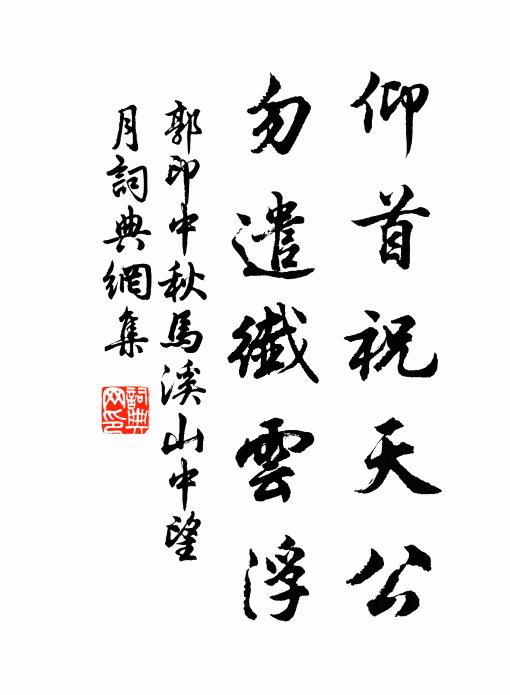 仰首祝天公
勿遣纖雲浮
郭印中秋馬溪山中望
月詞典網集
詞典網印